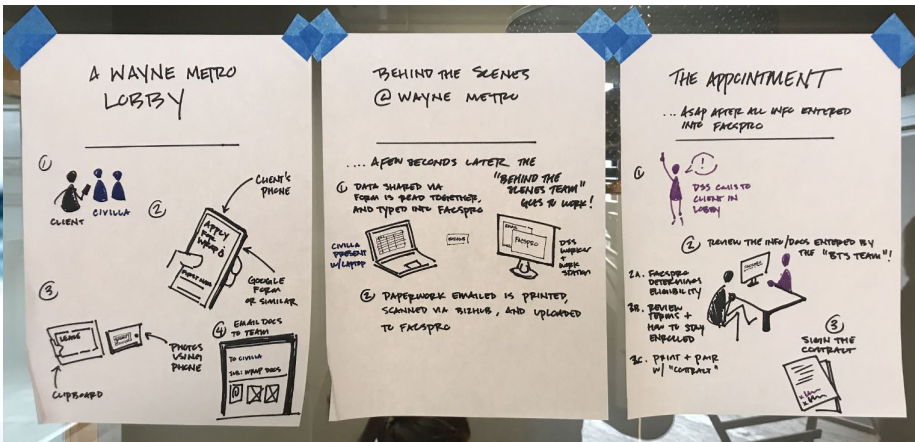 A WAYNE METRO
LOBBY
①
CLIENT
CIVILLA
②
CLIENT'S
PHONE
APPLY
FOR
WRAP
GOOGLE
FORM
OR SIMILAR
③
LEASE
CLIPBOARD
PHOTOS
USING
PHONE
④ EMAIL DOCS
TO TEAM
TO CIVILLA
SUB: WRAP DOCS
BEHIND THE SCENES
@ WAYNE METRO
.... A FEW SECONDS LATER THE
"BEHIND THE
SCENES TEAM"
GOES TO WORK!
① DATA SHARED VIA
FORM IS READ TOGETHER,
AND TYPED INTO FACSPRO
CIVILLA
PRESENT
W/LAPTOP
EMAIL
FACSPRO
DSS
WORKER
+
WORK
STATION
② PAPERWORK EMAILED IS PRINTED,
SCANNED VIA BIZHUB, AND UPLOADED
TO FACSPRO
THE APPOINTMENT
... ASAP AFTER ALL INFO ENTERED
INTO FACSPRO
①
!
DSS CALLS TO
CLIENT IN
LOBBY
② REVIEW THE INFO/DOCS ENTERED BY
THE "BTS TEAM"!
2A. FACSPRO
DETERMINES
ELIGIBILITY
FACSPRO
2B. REVIEW
TERMS +
HOW TO STAY
ENROLLED
3C. PRINT + PAIR
W/ "CONTRACT"
③
SIGN THE
CONTRACT